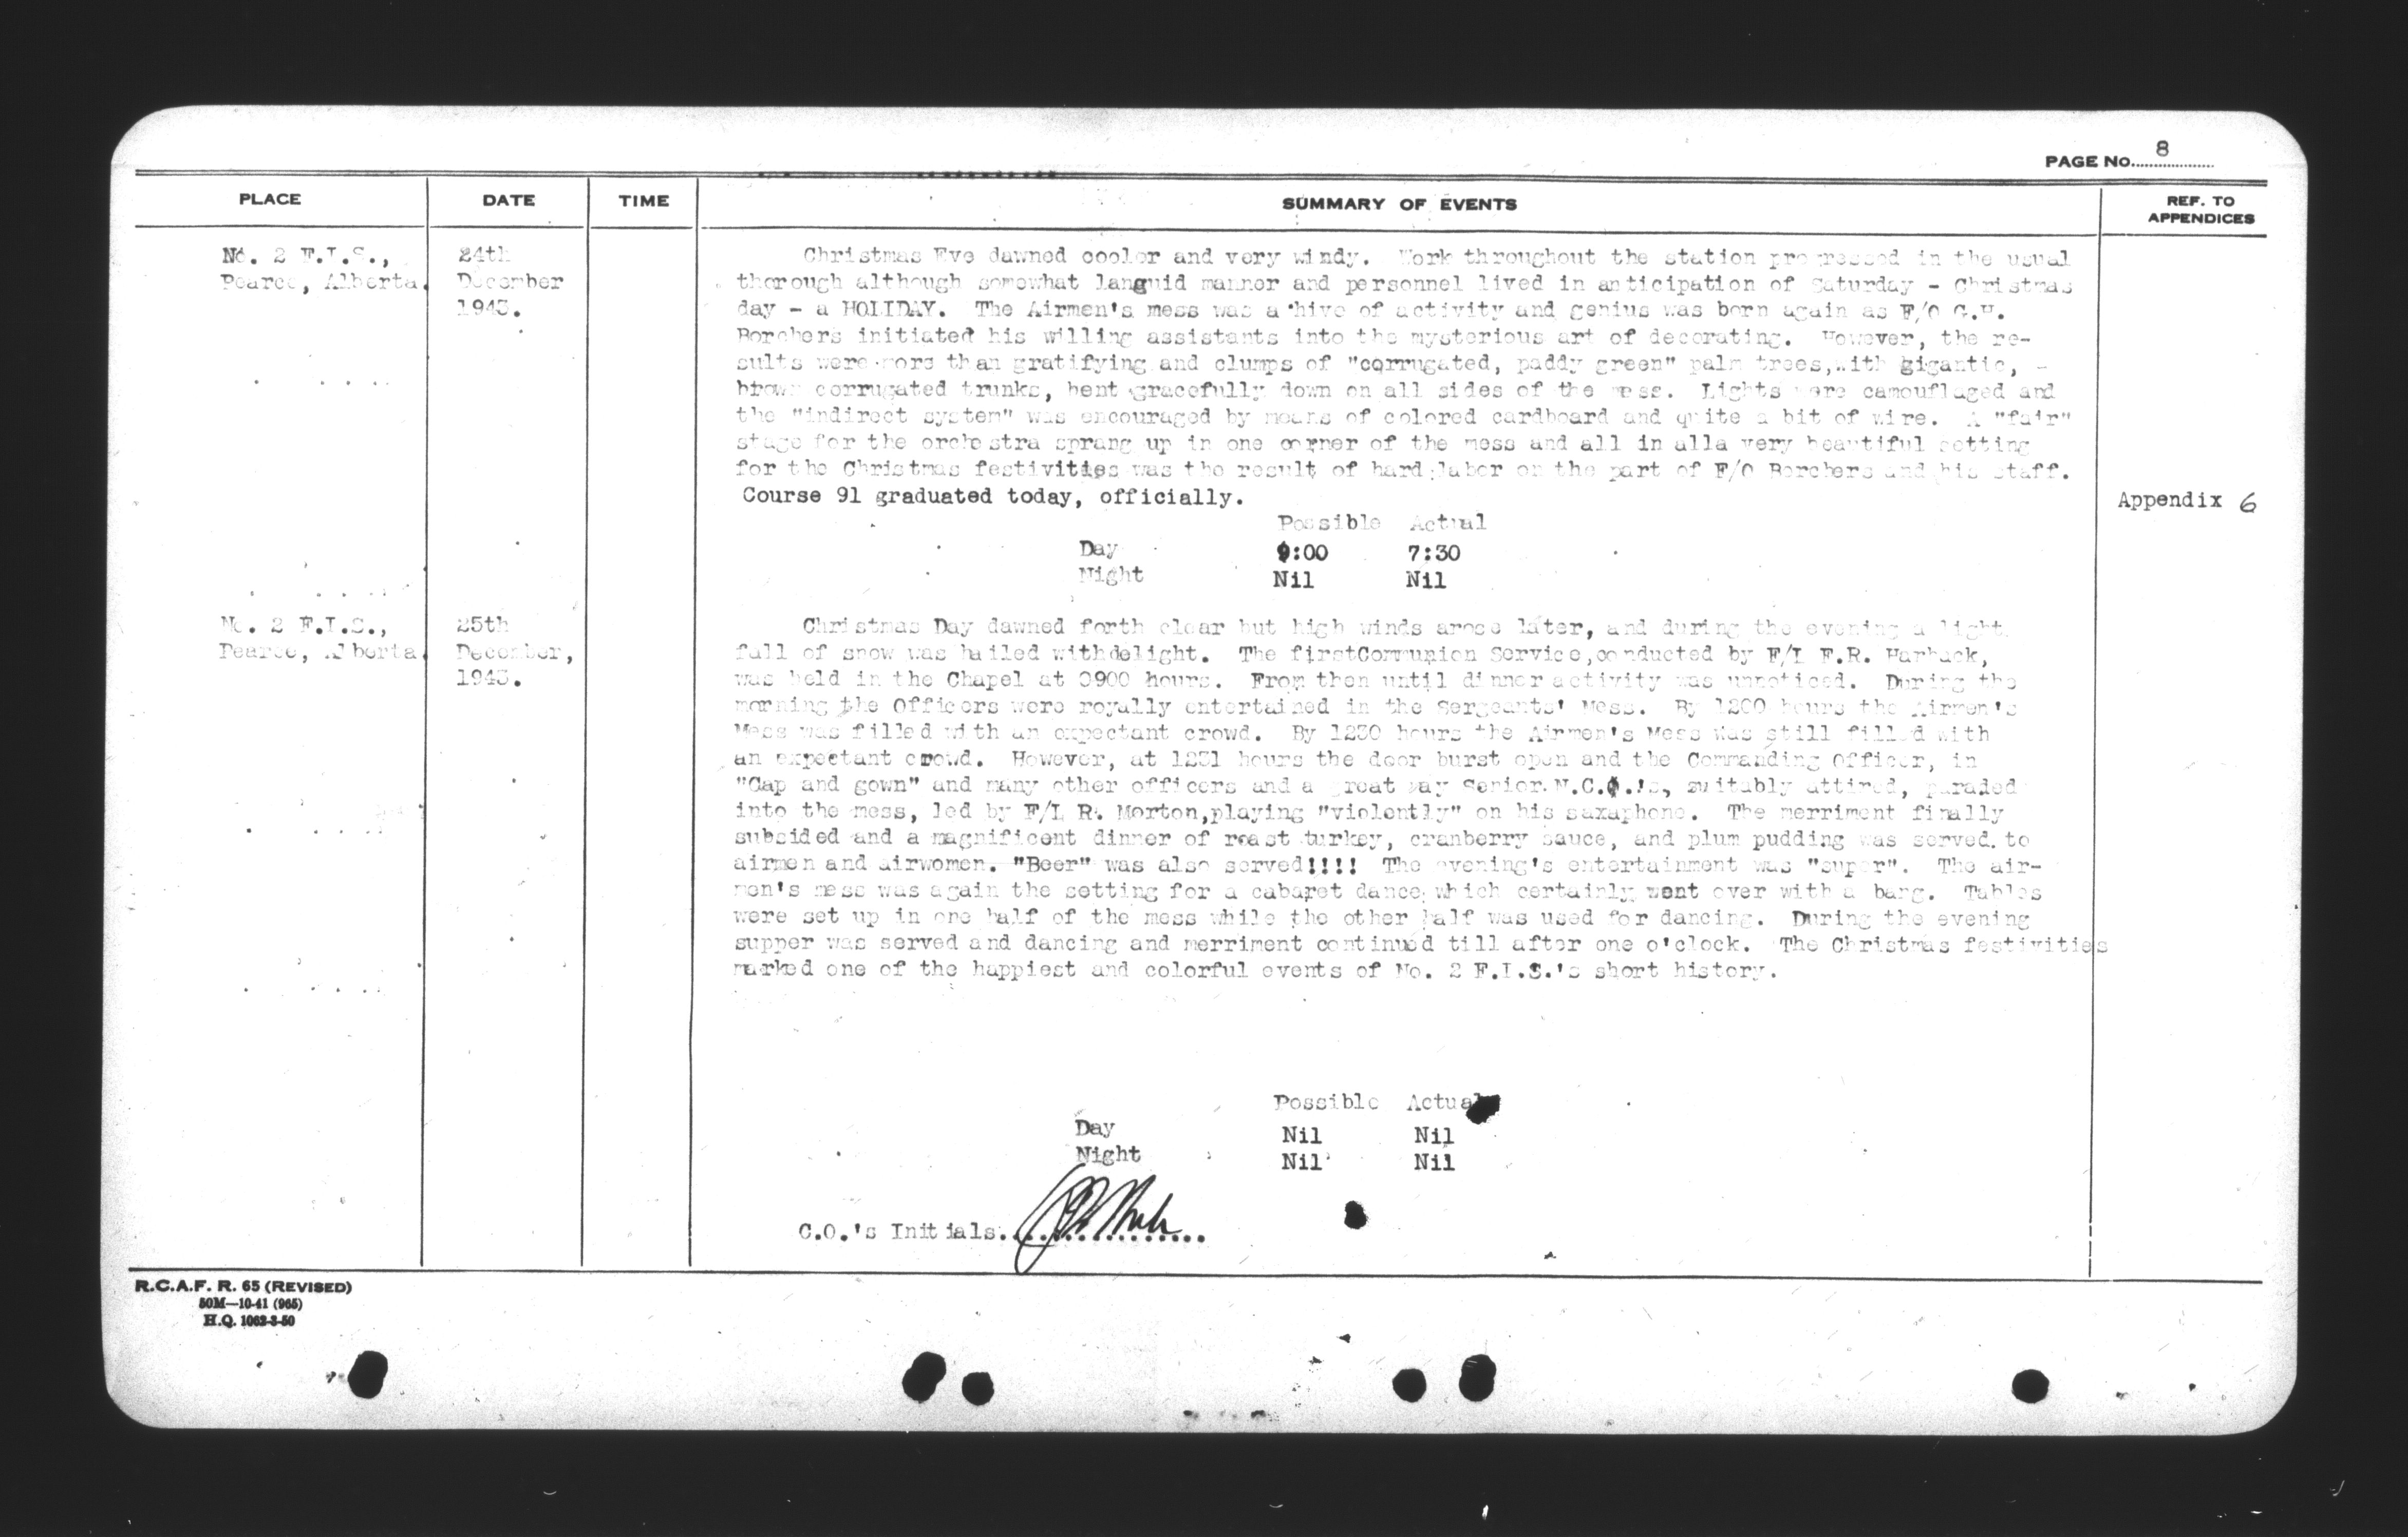 PAGE No. 8
PLACE DATE TIME SUMMARY OF EVENTS REF. TO APPENDICES
No. 2 F.I.S.,
Pearce, Alberta.
24th
December
1943.
Christmas Eve dawned cooler and very windy. Work throughout the station progressed in the usual
thorough although somewhat languid manner and personnel lived in anticipation of Saturday - Christmas
day - a HOLIDAY. The Airmen's mess was a hive of activity and genius was born again as F/O G.H.
Borchers initiated his willing assistants into the mysterious art of decorating. However, the re-
sults were more than gratifying and clumps of "corrugated, paddy green" palm trees, with gigantic, -
brown corrugated trunks, bent gracefully down on all sides of the mess. Lights were camouflaged and
the "indirect system" was encouraged by means of colored cardboard and quite a bit of wire. A "fair"
stage for the orchestra sprang up in one corner of the mess and all in alla very beautiful setting
for the Christmas festivities was the result of hard labor on the part of F/O Borchers and his staff.
Course 91 graduated today, officially.
Appendix 6
Possible Actual
Day 9:00 7:30
Night Nil Nil
No. 2 F.I.S.,
Pearce, Alberta
25th
December,
1943.
Christmas Day dawned forth clear but high winds arose later, and during the evening a light
fall of snow was hailed withdelight. The firstCommunion Service,conducted by F/L F.R. Harback,
was held in the Chapel at 0900 hours. From then until dinner activity was unnoticed. During the
morning the Officers were royally entertained in the Sergeants' Mess. By 1200 hours the Airmen's
Mess was filled with an expectant crowd. By 1230 hours the Airmen's Mess was still filled with
an expectant crowd. However, at 1231 hours the door burst open and the Commanding Officer, in
"Cap and gown" and many other officers and a great may Senior N.C.O.'s, suitably attired, paraded
into the mess, led by F/L R. Morton,playing "violently" on his saxaphone. The merriment finally
subsided and a magnificent dinner of roast turkey, cranberry sauce, and plum pudding was served to
airmen and airwomen. "Beer" was also served!!!! The evening's entertainment was "super". The air-
men's mess was again the setting for a cabaret dance which certainly went over with a bang. Tables
were set up in one half of the mess while the other half was used for dancing. During the evening
supper was served and dancing and merriment continued till after one o'clock. The Christmas festivities
marked one of the happiest and colorful events of No. 2 F.I.S.'s short history.
Possible Actual
Day Nil Nil
Night Nil Nil
C.O.'s Initials
R.C.A.F. R. 65 (REVISED)
50M—10-41 (965)
H.Q. 1062-3-50